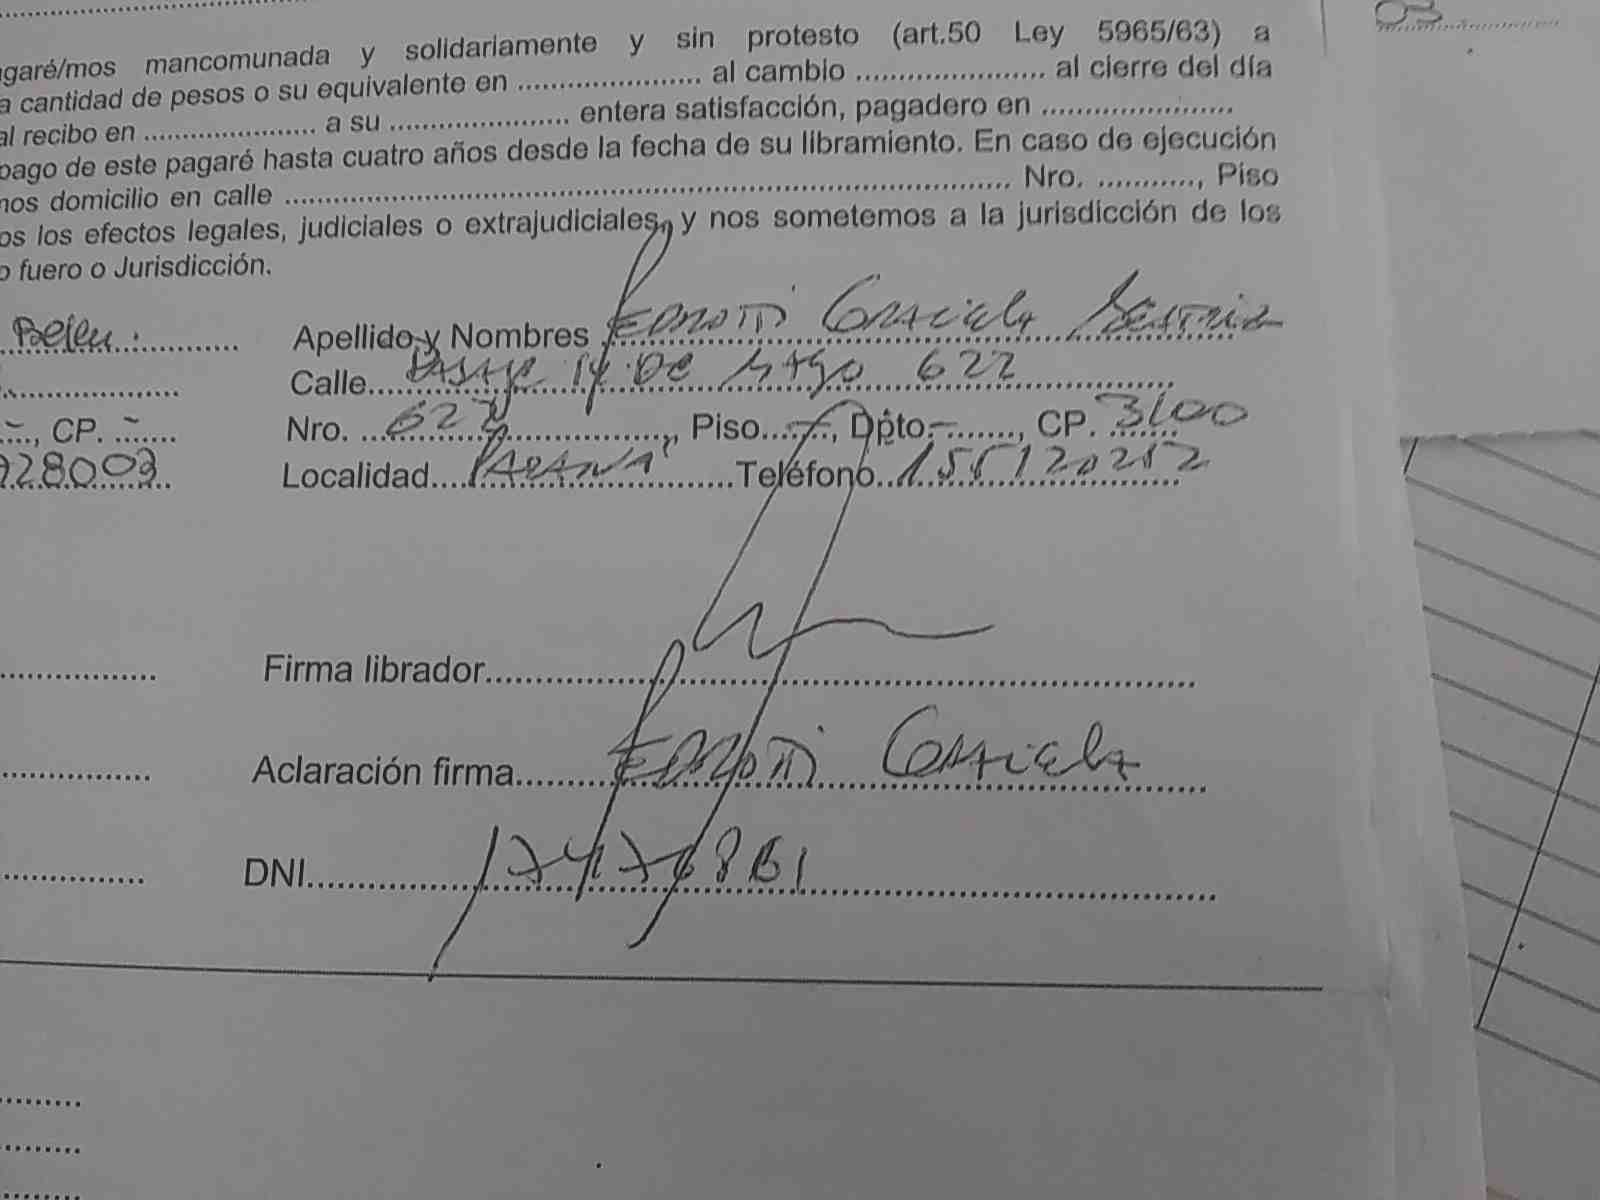 garé/mos mancomunada y solidariamente y sin protesto (art.50 Ley 5965/63) a
a cantidad de pesos o su equivalente en ..................... al cambio ...................... al cierre del día
al recibo en ..................... a su ..................... entera satisfacción, pagadero en ......................
pago de este pagaré hasta cuatro años desde la fecha de su libramiento. En caso de ejecución
mos domicilio en calle ..................... Nro. ..........., Piso
os los efectos legales, judiciales o extrajudiciales, y nos sometemos a la jurisdicción de los
o fuero o Jurisdicción.
Belen. Apellido y Nombres Graciela Beatriz
Calle Pasaje 14 de Mayo 622
, CP. - Nro. 622, Piso -, Dpto. -, CP. 3100
928003 Localidad Paraná Teléfono 155120252
Firma librador
Aclaración firma Graciela
DNI 17476861